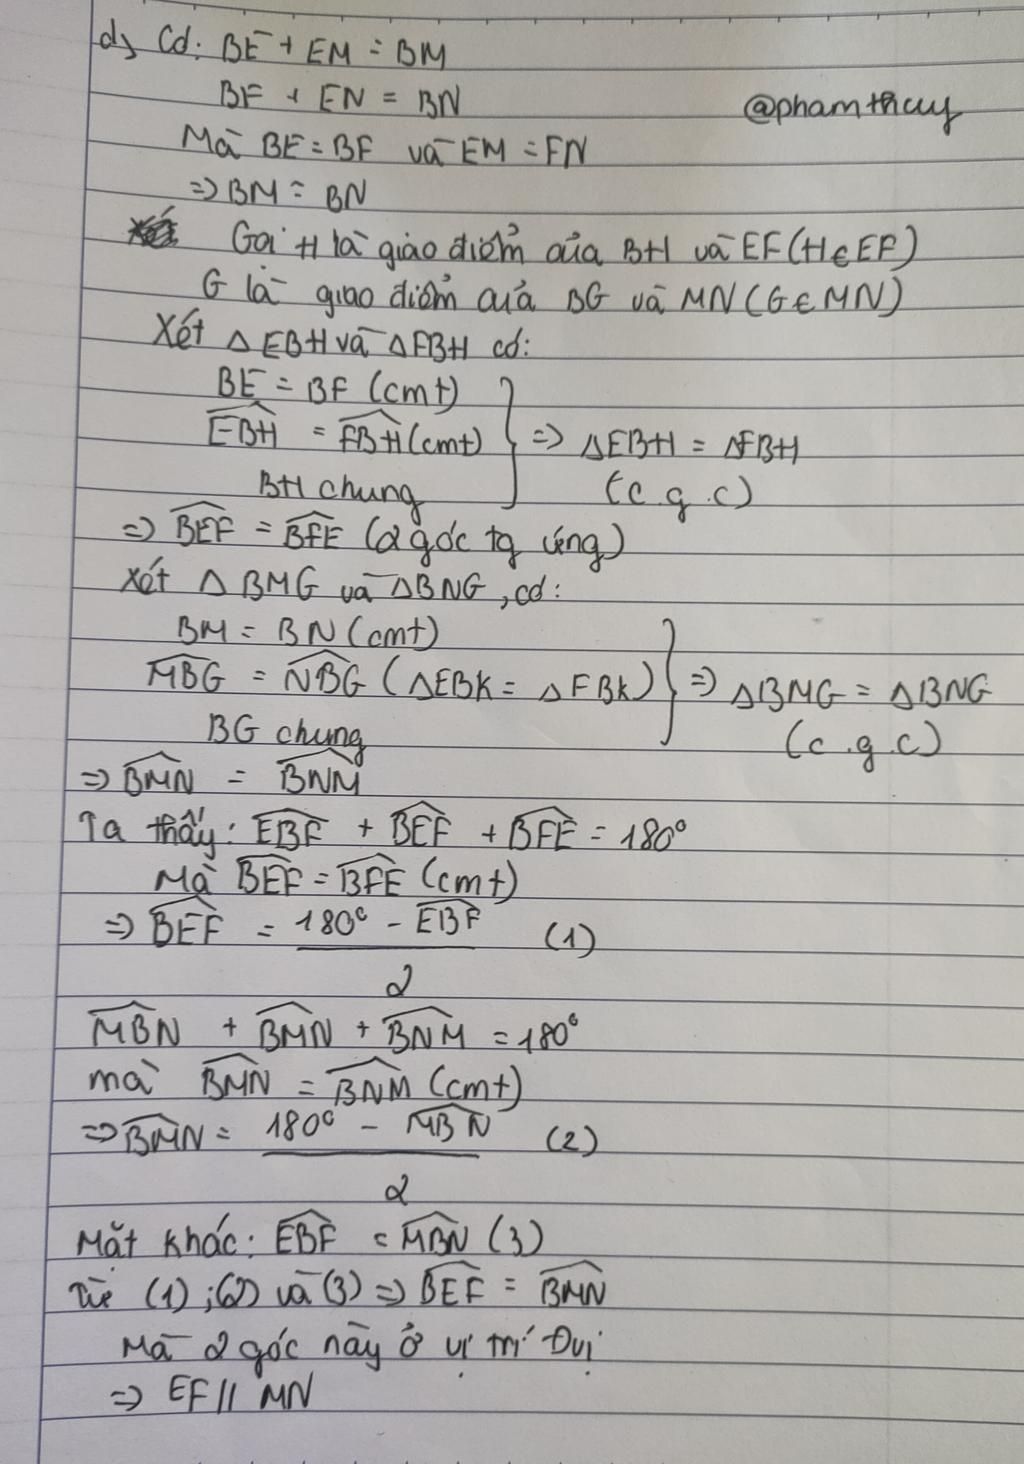 d) Có: BE + EM = BM
BF + EN = BN
@phamthuy
Mà BE = BF và EM = FN
=> BM = BN
Gọi H là giao điểm của BH và EF (H ∈ EF)
G là giao điểm của BG và MN (G ∈ MN)
Xét △EBH và △FBH có:
BE = BF (cmt)
\widehat{EBH} = \widehat{FBH} (cmt)
BH chung
=> △EBH = △FBH
(c.g.c)
=> \widehat{BEF} = \widehat{BFE} (2 góc tg ứng)
Xét △BMG và △BNG, có:
BM = BN (cmt)
\widehat{MBG} = \widehat{NBG} (△EBK = △FBK)
BG chung
=> △BMG = △BNG
(c.g.c)
=> \widehat{BMN} = \widehat{BNM}
Ta thấy: \widehat{EBF} + \widehat{BEF} + \widehat{BFE} = 180°
Mà \widehat{BEF} = \widehat{BFE} (cmt)
=> \widehat{BEF} = \frac{180° - \widehat{EBF}}{2} (1)
\widehat{MBN} + \widehat{BMN} + \widehat{BNM} = 180°
mà \widehat{BMN} = \widehat{BNM} (cmt)
=> \widehat{BMN} = \frac{180° - \widehat{MBN}}{2} (2)
Mặt khác: \widehat{EBF} = \widehat{MBN} (3)
Từ (1);(2) và (3) => \widehat{BEF} = \widehat{BMN}
Mà 2 góc này ở vị trí Đvị
=> EF // MN